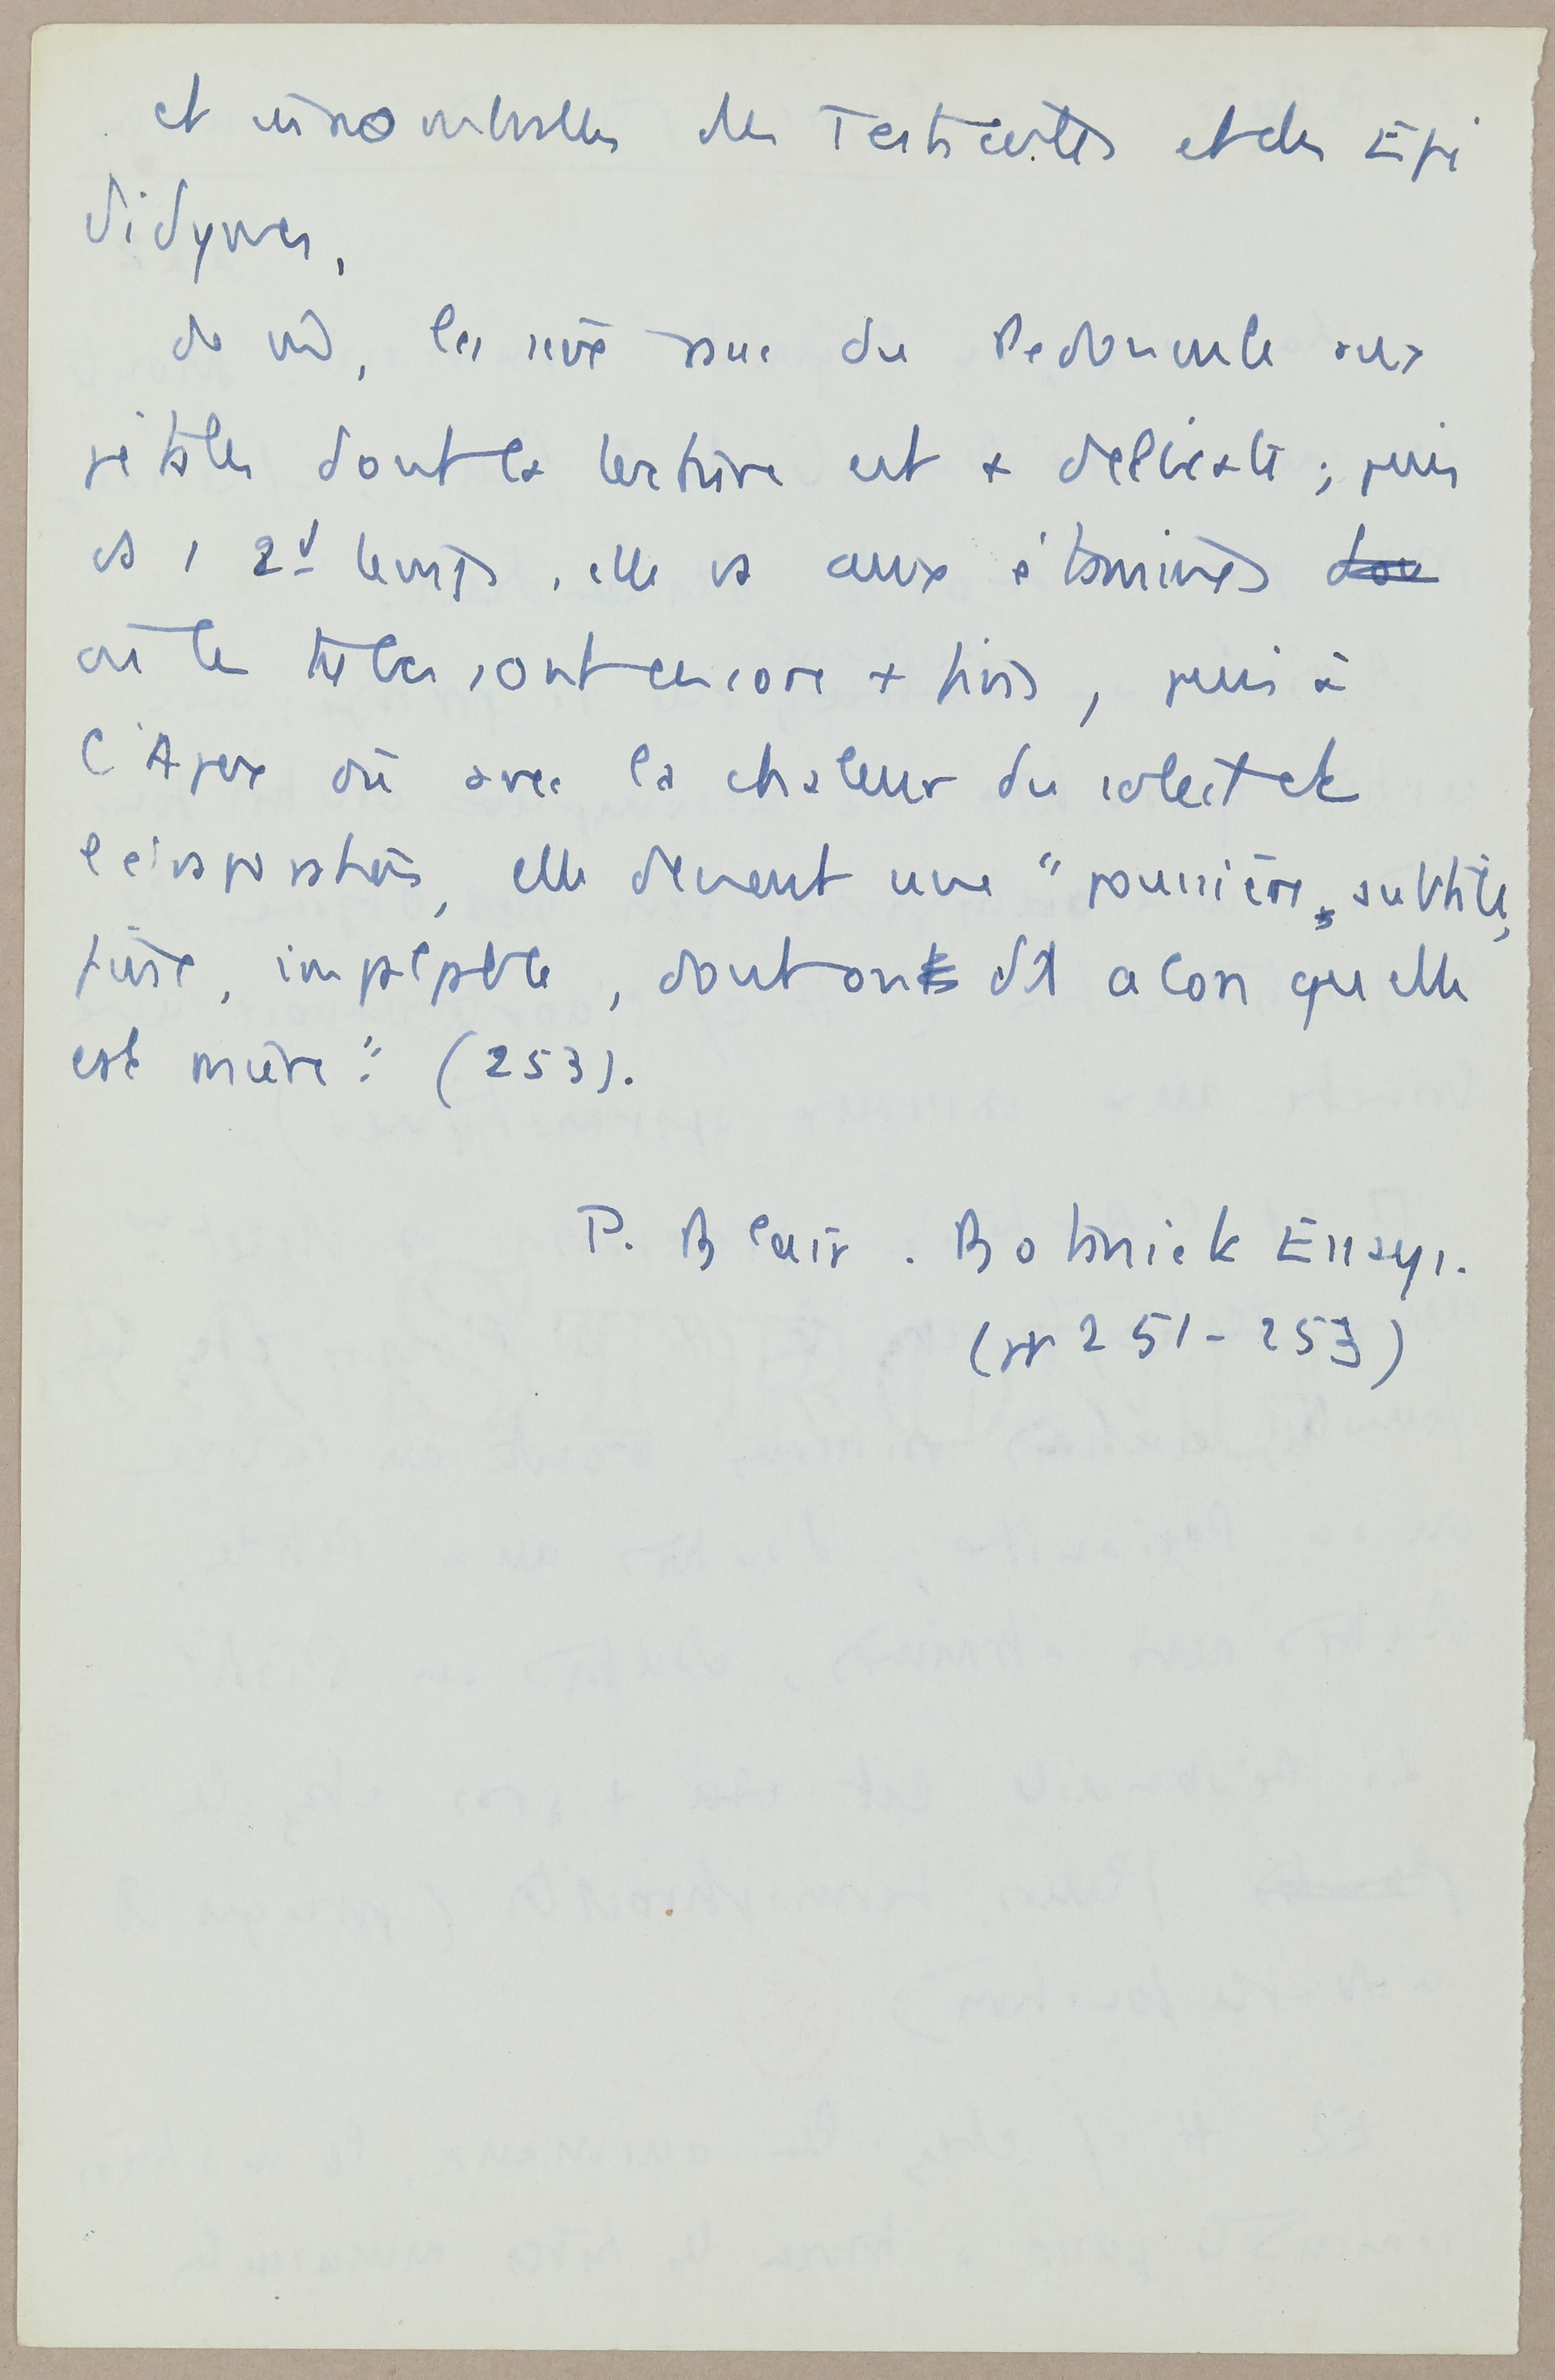 et innombrables des Testicules et des Epi
didymes,
de md, la sève passe du Pedoncule aux
pétales dont la texture est + délicate ; puis
ds 1 2d temps, elle va aux étamines dou
où les tubes sont encore + fins, puis à
l'Apex où avec la chaleur du soleil et de
l'évaporation, elle devient une "poussière, subtile,
fine, impalpable, dont on dit alors qu'elle
est mûre" (253).
P. Blair. Botanick Essays.
(pp 251-253)